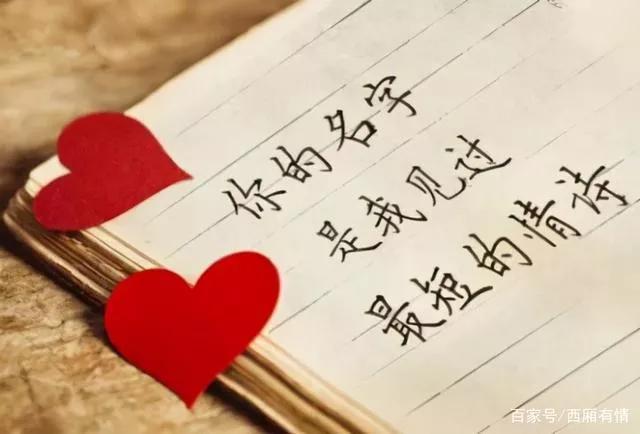 你的名字
是我见过
最短的情诗
百家号/西厢有情